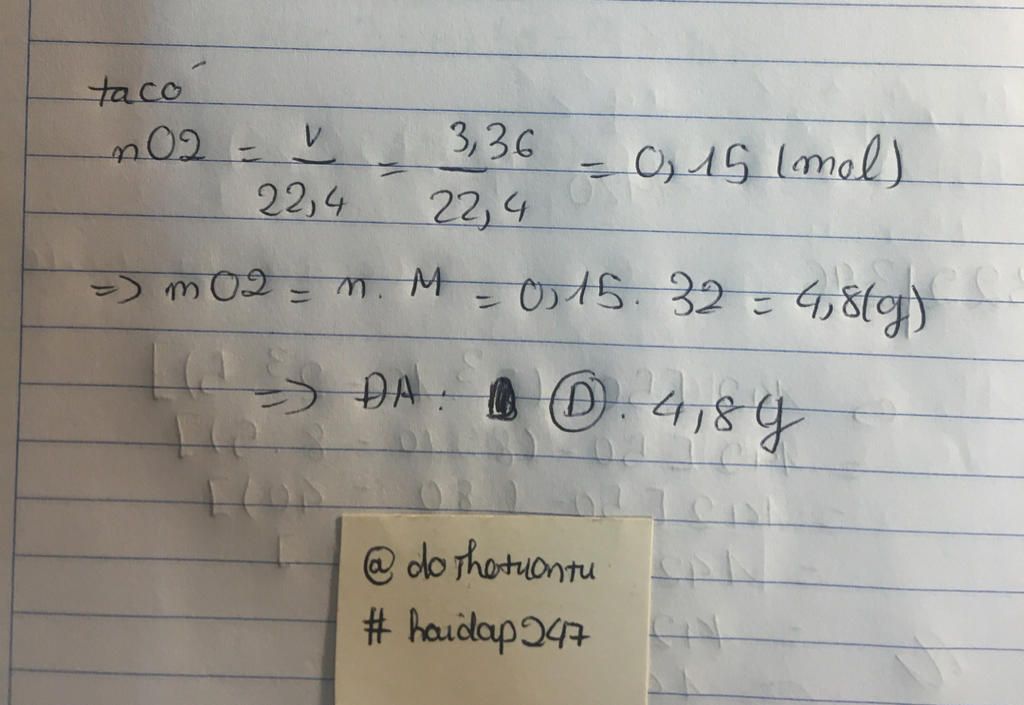 ta có
nO2 = V/22,4 = 3,36/22,4 = 0,15 (mol)
=> mO2 = n. M = 0,15. 32 = 4,8(g)
=> DA: D. 4,8g
@ dothetuontu
# hoidap247